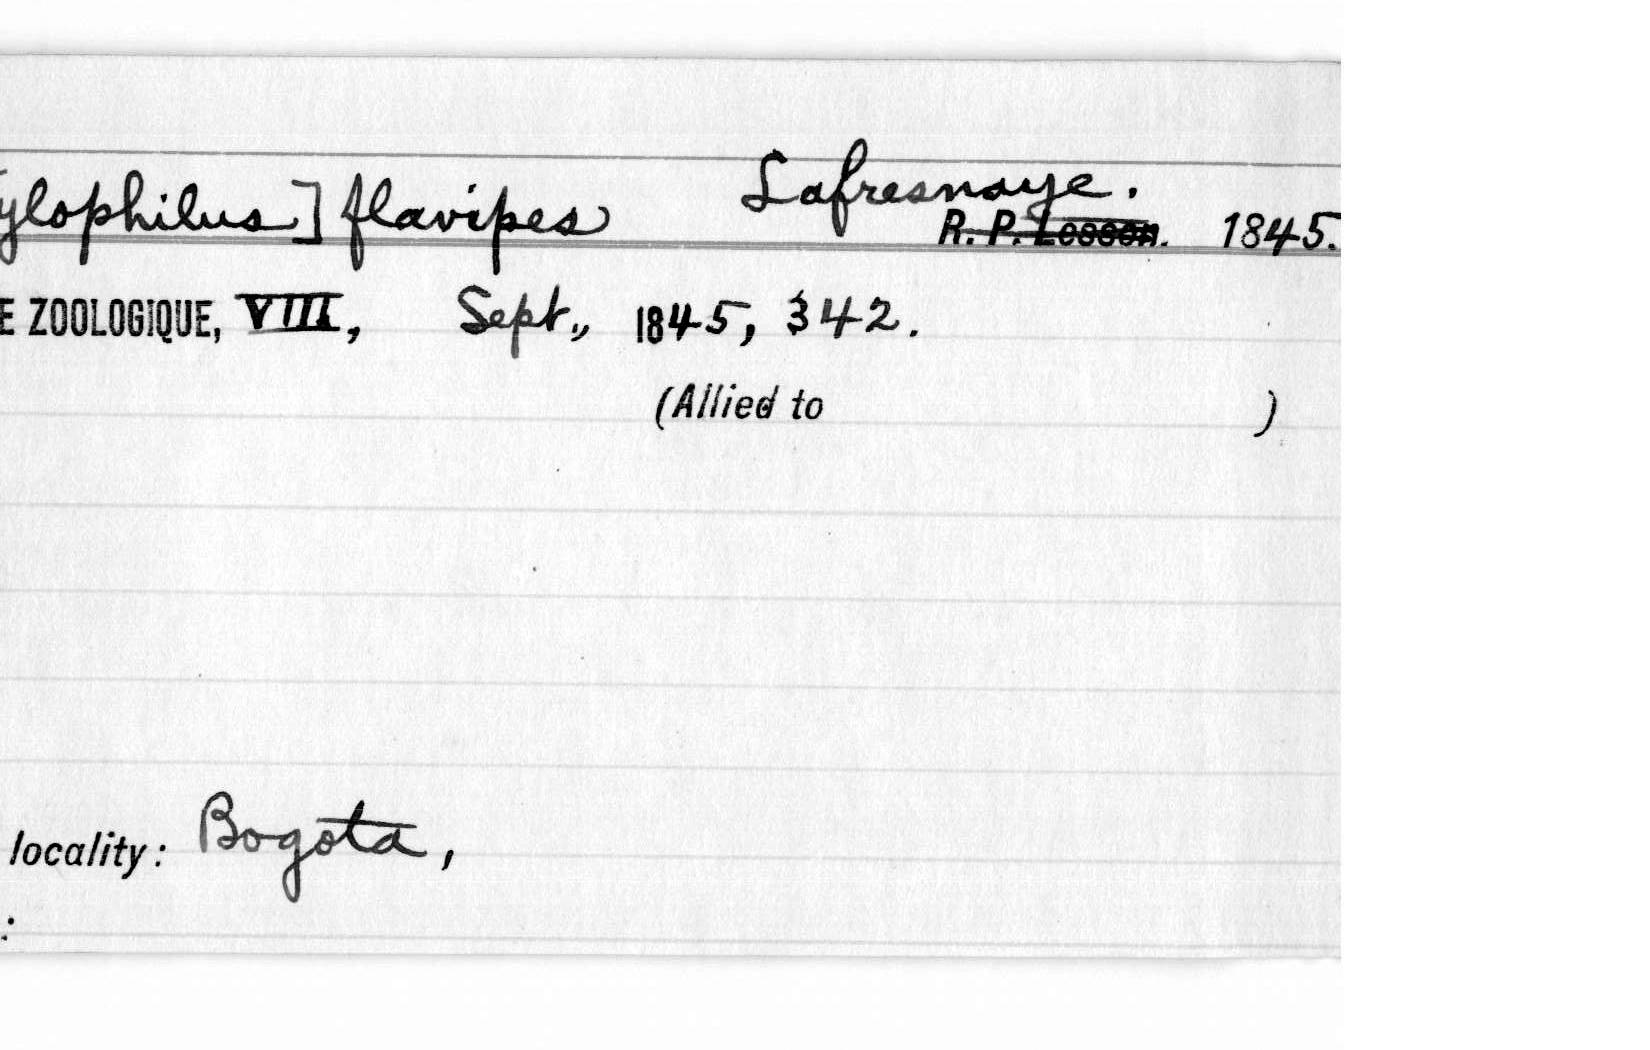 ylophilus] flavipes Lafresnaye.
R. P. Lesson. 1845.
E ZOOLOGIQUE, VIII, Sept., 1845, 342.
(Allied to )
locality: Bogota,
: